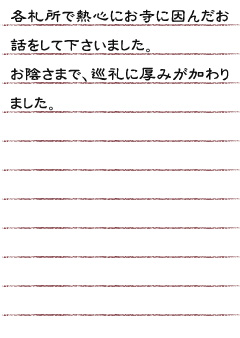 各札所で熱心にお寺に因んだお
話をして下さいました。
お陰さまで、巡礼に厚みが加わり
ました。